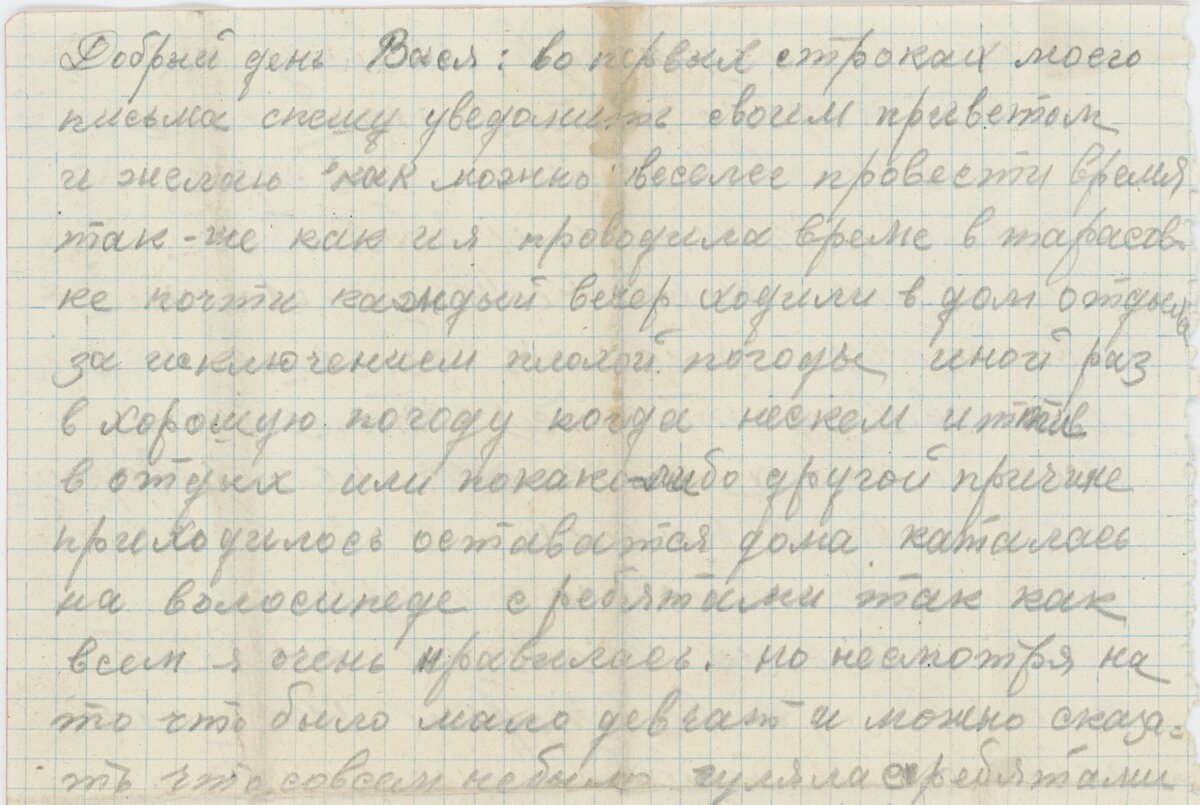 Добрый день Вася: во первых строках моего
письма спешу уведомить своим приветом
и желаю как можно веселее провести время
так-же как и я проводила време в тарасов-
ке почти каждый вечер ходили в дом отдыха
за исключением плохой погоды иной раз
в хорошую погоду когда нескем итти
в отдых или покакой-либо другой причине
приходилось остават|ся дома каталась
на волосипеде с ребятами так как
всем я очень нравилась. но несмотря на
то что было мало девчат и можно сказа-
ть что совсем небыло гуляла с ребятами